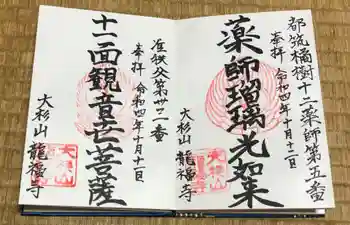 都筑橘樹十二薬師第五番
奉拝 令和四年十月十一日
薬師瑠璃光如来
大杉山 龍福寺
准秩父第廿二番
奉拝 令和四年十月十一日
十一面観音菩薩
大杉山 龍福寺